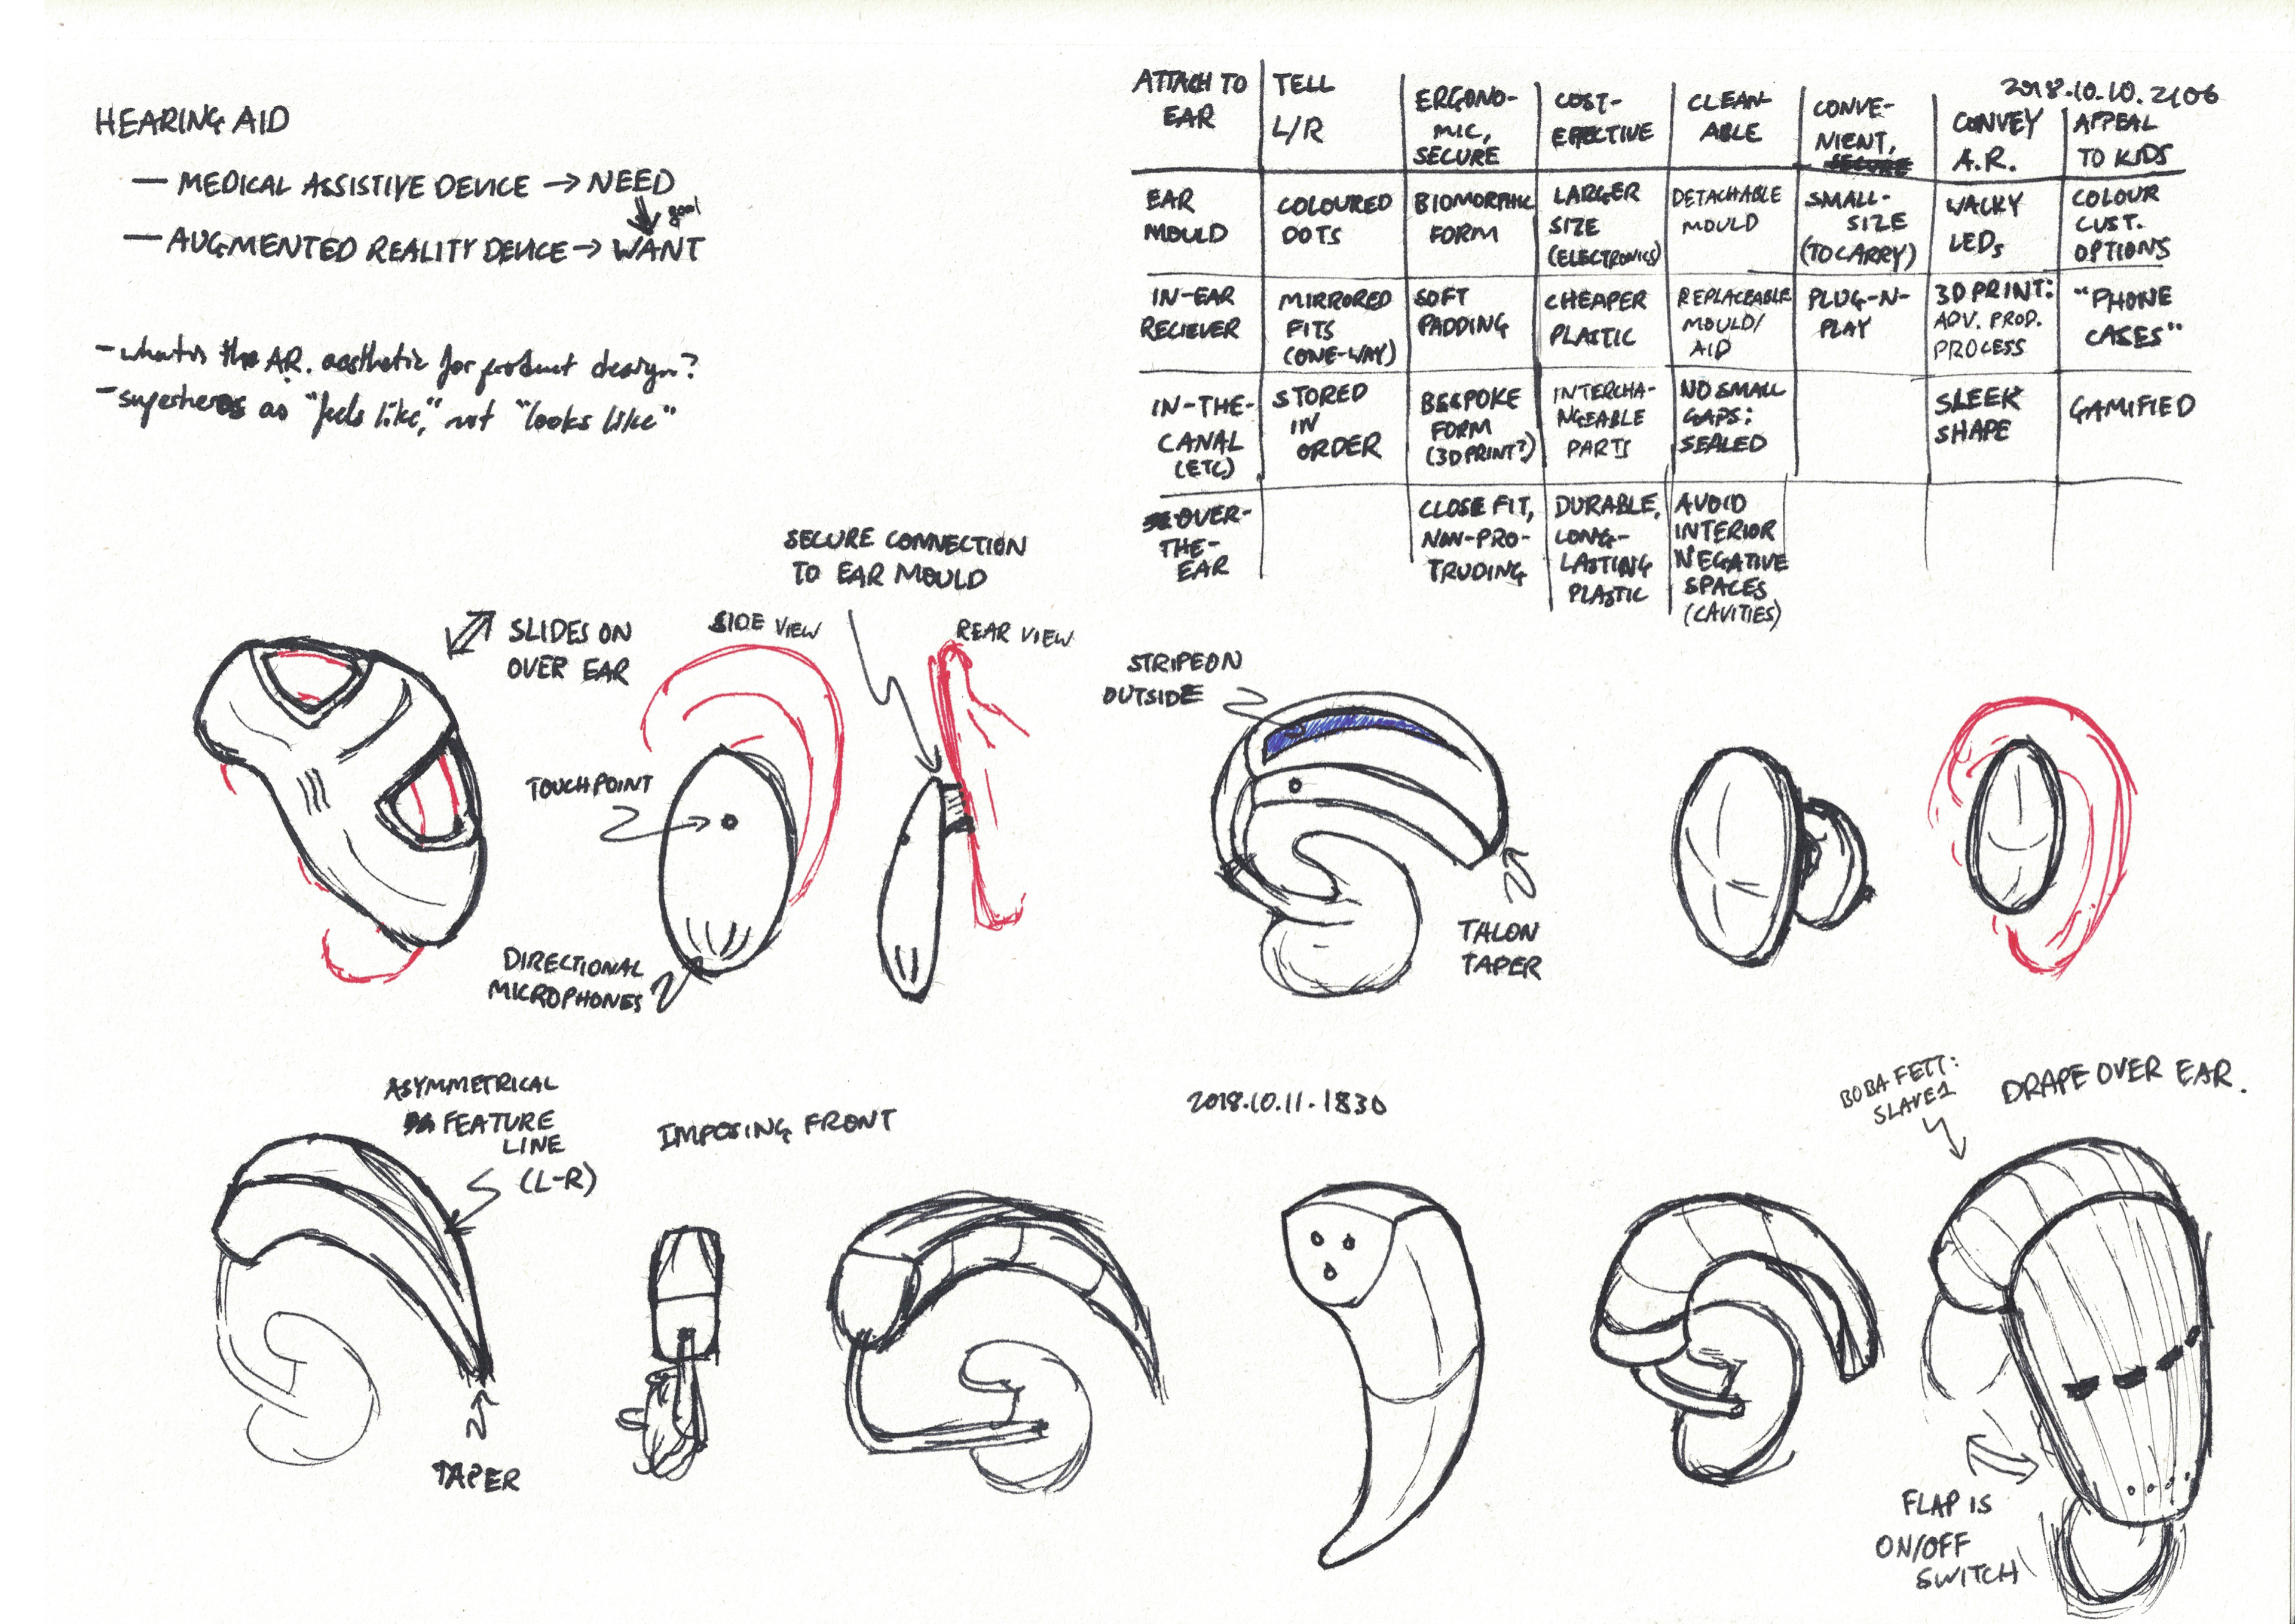 HEARING AID
— MEDICAL ASSISTIVE DEVICE → NEED
goal
— AUGMENTED REALITY DEVICE → WANT
- what is the A.R. aesthetic for product design?
- superheros as "feels like," not "looks like"
2018.10.10.2106
ATTACH TO
EAR
TELL
L/R
ERGONO-
MIC,
SECURE
COST-
EFFECTIVE
CLEAN-
ABLE
CONVE-
NIENT,
SECURE
CONVEY
A.R.
APPEAL
TO KIDS
EAR
MOULD
COLOURED
DOTS
BIOMORPHIC
FORM
LARGER
SIZE
(ELECTRONICS)
DETACHABLE
MOULD
SMALL-
SIZE
(TO CARRY)
WACKY
LEDs
COLOUR
CUST.
OPTIONS
IN-EAR
RECIEVER
MIRRORED
FITS
(ONE-WAY)
SOFT
PADDING
CHEAPER
PLASTIC
REPLACEABLE
MOULD/
AID
PLUG-N-
PLAY
3D PRINT:
ADV. PROD.
PROCESS
"PHONE
CASES"
IN-THE-
CANAL
(ETC)
STORED
IN
ORDER
BESPOKE
FORM
(3D PRINT?)
INTERCHA-
NGEABLE
PARTS
NO SMALL
GAPS:
SEALED
SLEEK
SHAPE
GAMIFIED
OVER-
THE-
EAR
CLOSE FIT,
NON-PRO-
TRUDING
DURABLE,
LONG-
LASTING
PLASTIC
AVOID
INTERIOR
NEGATIVE
SPACES
(CAVITIES)
SLIDES ON
OVER EAR
SECURE CONNECTION
TO EAR MOULD
SIDE VIEW
REAR VIEW
TOUCHPOINT
DIRECTIONAL
MICROPHONES
STRIPE ON
OUTSIDE
TALON
TAPER
ASYMMETRICAL
FEATURE
LINE
(L-R)
TAPER
IMPOSING FRONT
2018.10.11.1830
BOBA FETT:
SLAVE 1
DRAPE OVER EAR.
FLAP IS
ON/OFF
SWITCH